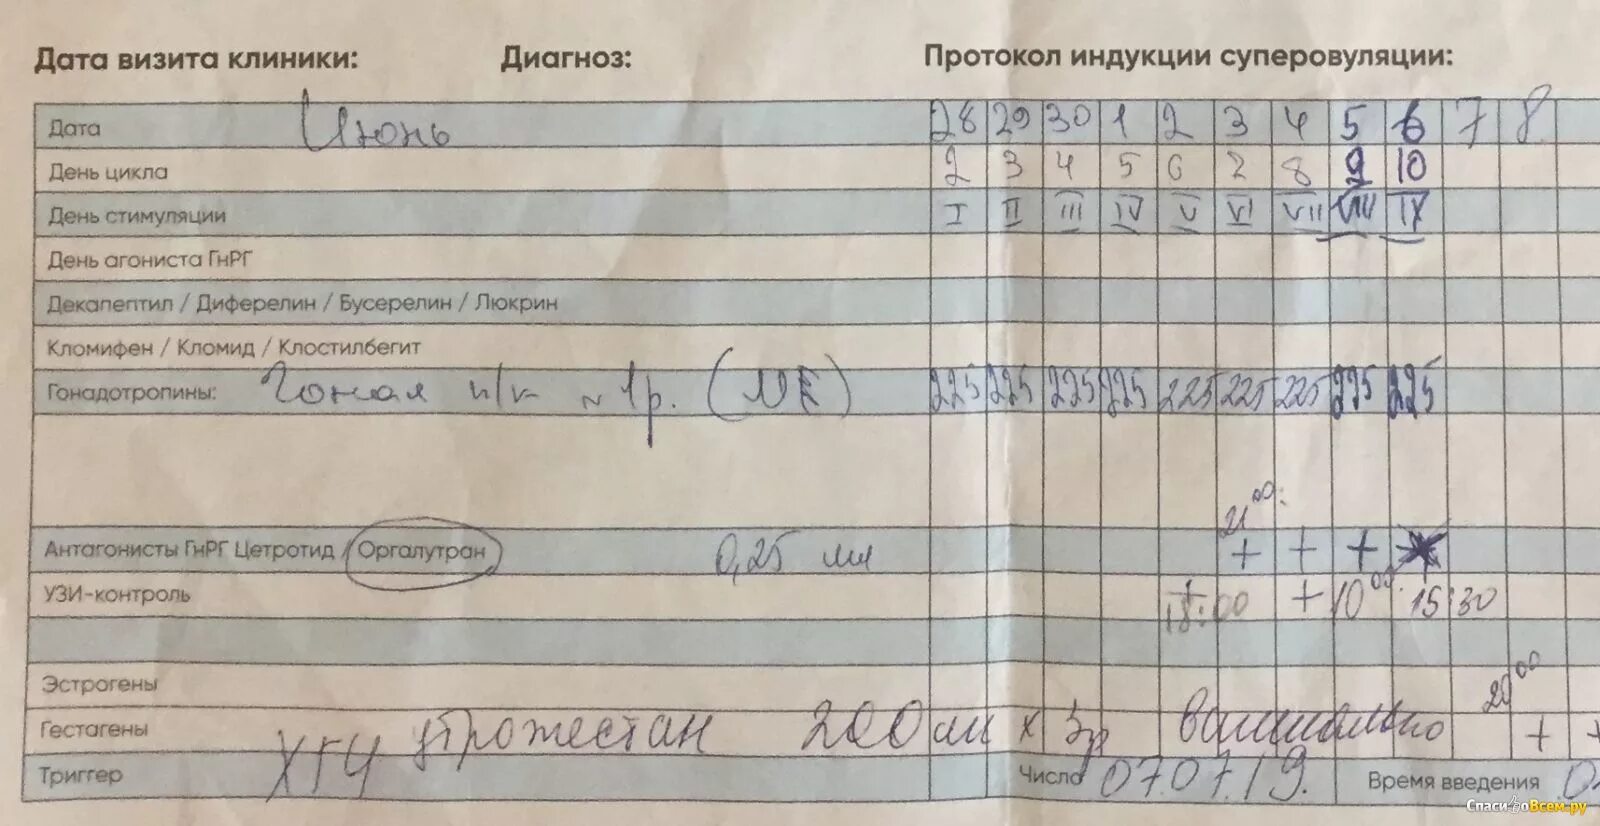 Дата визита клиники: Диагноз: Протокол индукции суперовуляции:
Дата Июнь 28 29 30 1 2 3 4 5 6 7 8
День цикла 2 3 4 5 6 7 8 9 10
День стимуляции I II III IV V VI VII VIII IX
День агониста ГнРГ
Декапептил / Диферелин / Бусерелин / Люкрин
Кломифен / Кломид / Клостилбегит
Гонадотропины: Гонал п/к 1р. (МЕ) 225 225 225 225 225 225 225 225 225
21 00
Антагонисты ГнРГ Цетротид / Оргалутран 0,25 мл + + +
УЗИ-контроль + 18:00 + 10 00 15:30
Эстрогены
20 00
Гестагены утрожестан 200 мг х 3р вагинально + +
Триггер ХГЧ Число 07.07.19. Время введения
Спасибо Всем.ру